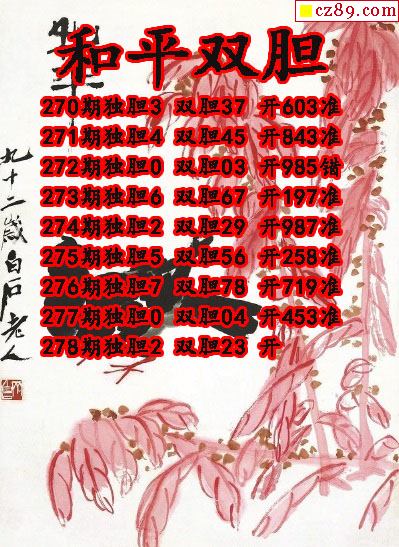 cz89.com
和平双胆
270期独胆3 双胆37 开603准
271期独胆4 双胆45 开843准
272期独胆0 双胆03 开985错
273期独胆6 双胆67 开197准
274期独胆2 双胆29 开987准
275期独胆5 双胆56 开258准
276期独胆7 双胆78 开719准
277期独胆0 双胆04 开453准
278期独胆2 双胆23 开
九十二岁白石老人